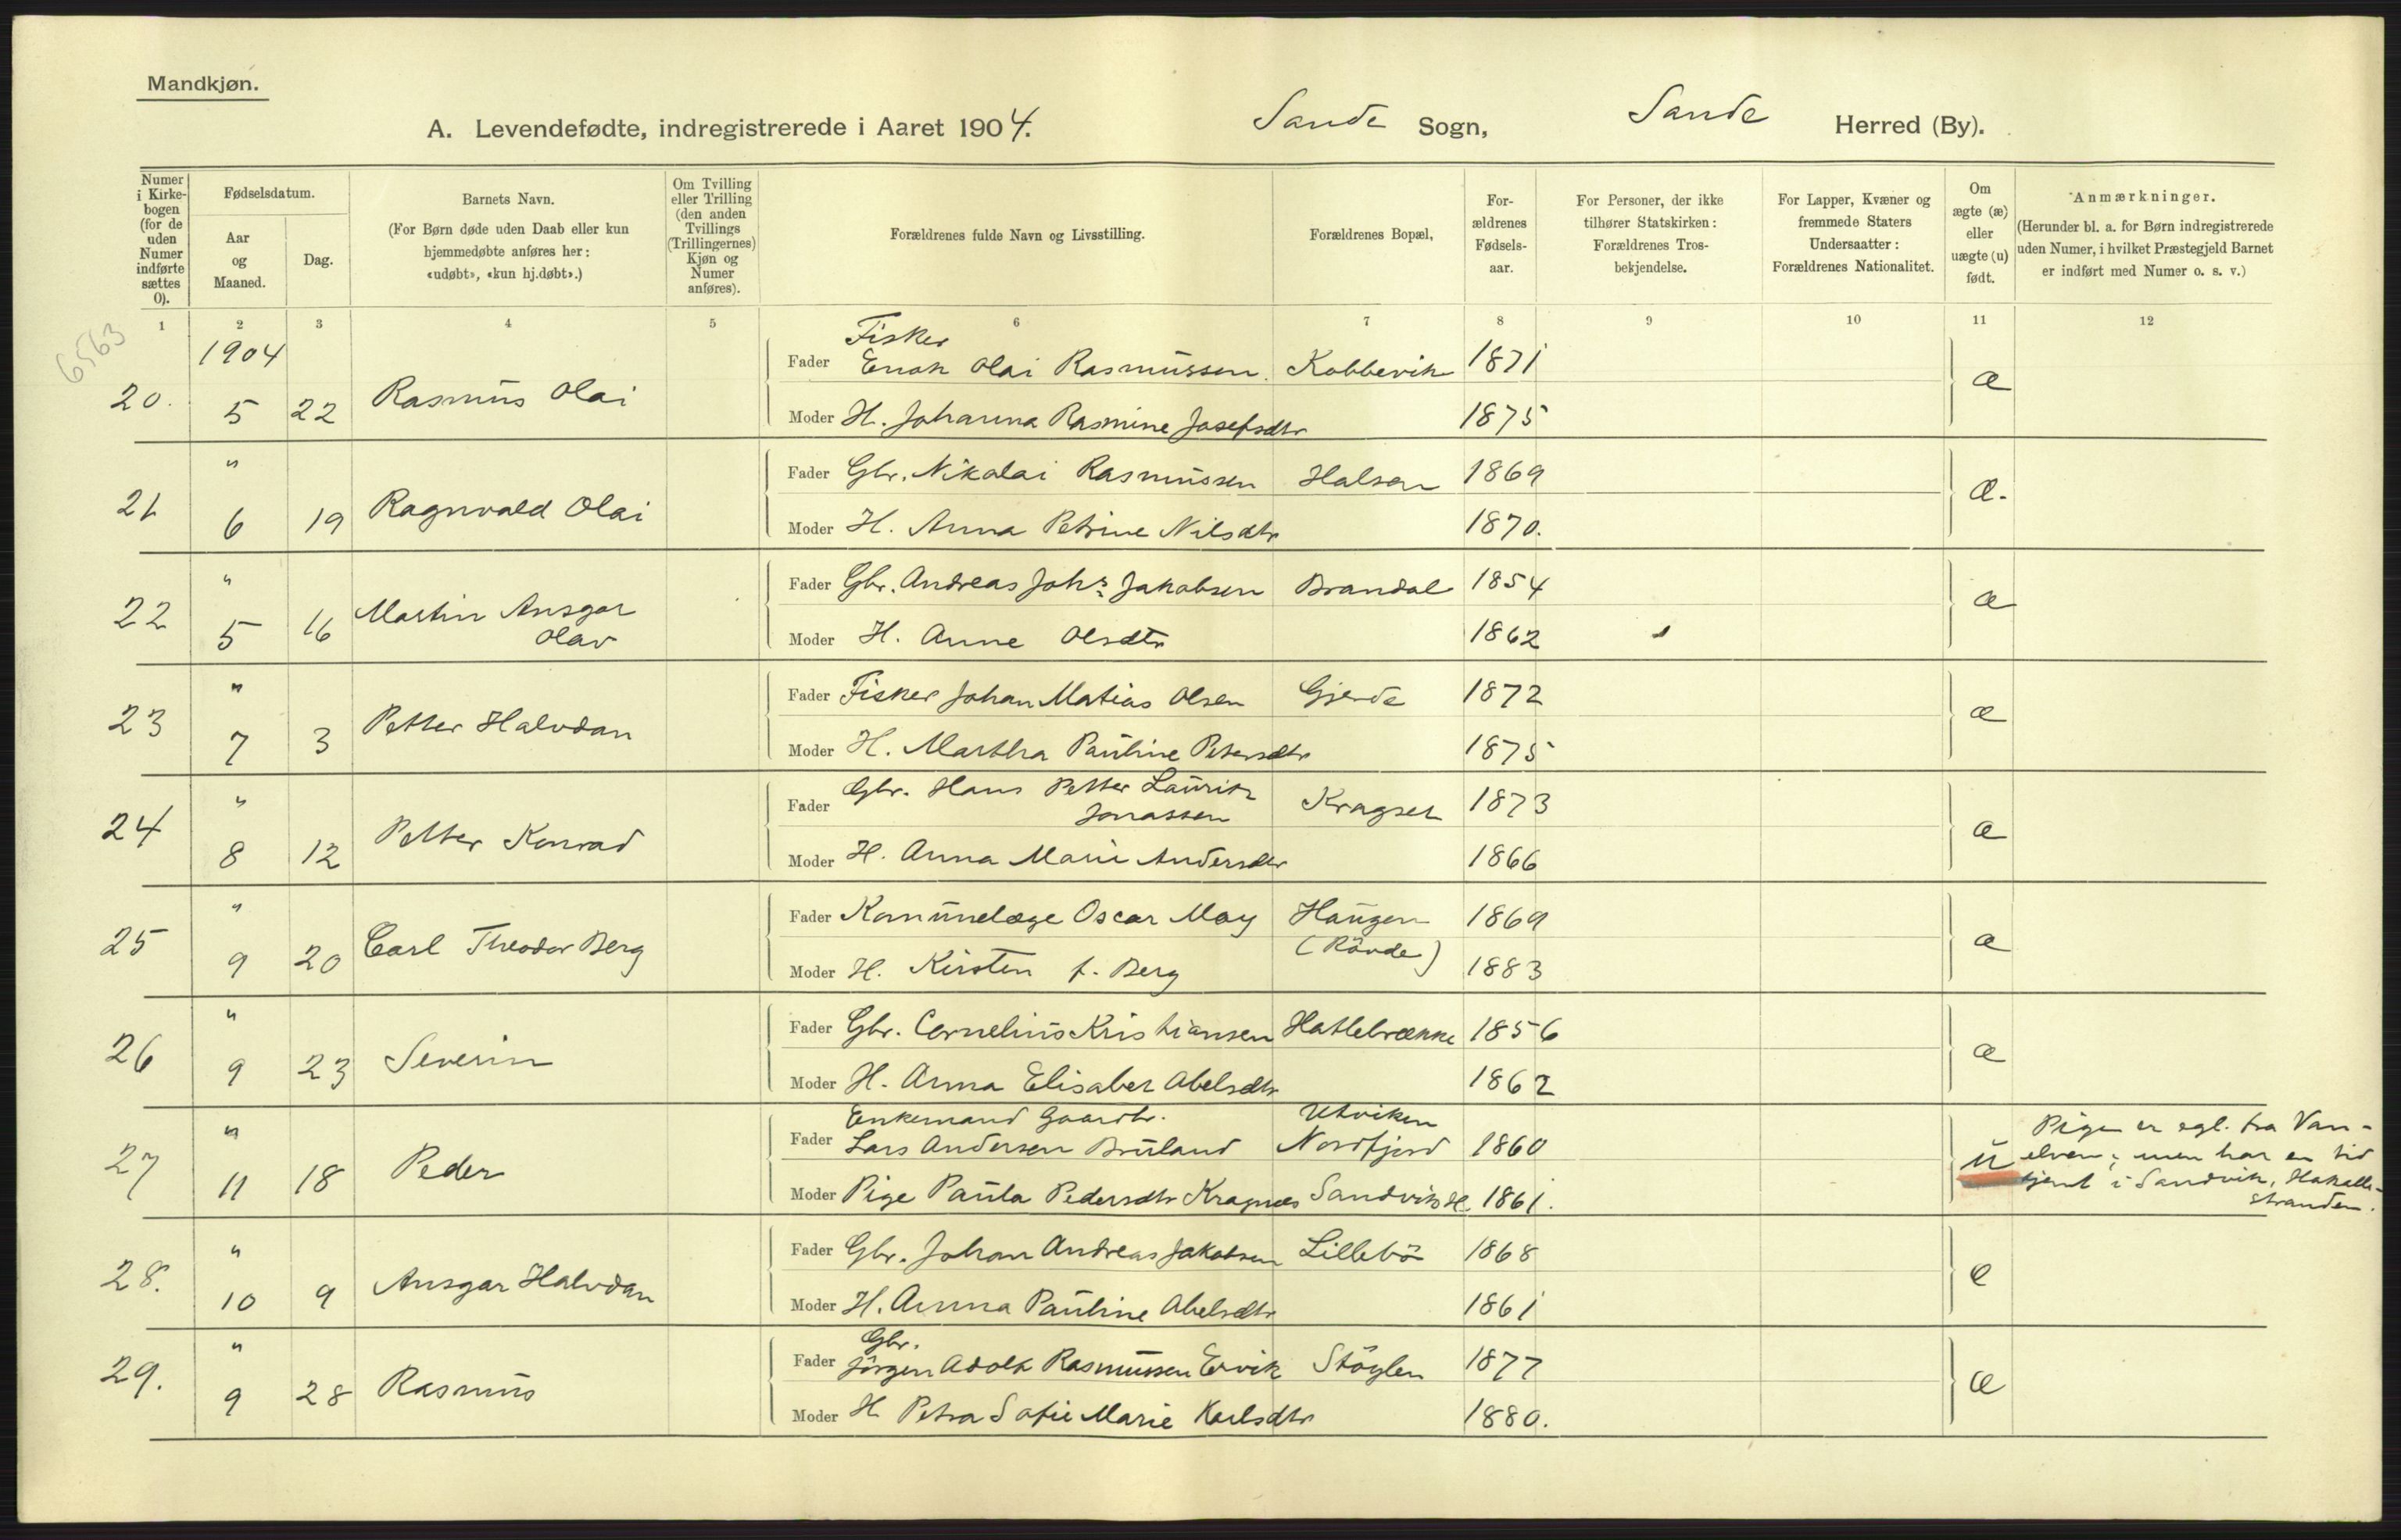 Mandkjøn.
A. Levendefødte, indregistrerede i Aaret 1904. Sande Sogn, Sande Herred (By).
Numer i Kirkebogen (for de uden Numer indførte sættes 0).
Fødselsdatum.
Aar og Maaned.
Dag.
Barnets Navn.
(For Børn døde uden Daab eller kun hjemmedøbte anføres her: «udøbt», «kun hj.døbt».)
Om Tvilling eller Trilling (den anden Tvillings (Trillingernes) Kjøn og Numer anføres).
Forældrenes fulde Navn og Livsstilling.
Forældrenes Bopæl,
Forældrenes Fødselsaar.
For Personer, der ikke tilhører Statskirken: Forældrenes Trosbekjendelse.
For Lapper, Kvæner og fremmede Staters Undersaatter: Forældrenes Nationalitet.
Om ægte (æ) eller uægte (u) født.
Anmærkninger.
(Herunder bl. a. for Børn indregistrerede uden Numer, i hvilket Præstegjeld Barnet er indført med Numer o. s. v.)
1 2 3 4 5 6 7 8 9 10 11 12
6563
1904
20. 5 22 Rasmus Olai
Fisker
Fader Enok Olai Rasmussen. Kobbevik 1871 æ
Moder H. Johanna Rasmine Josefsdtr 1875
21 " 6 19 Ragnvald Olai
Fader Gbr. Nikolai Rasmussen Halsen 1869 æ.
Moder H. Anna Petrine Nilsdtr 1870.
22 " 5 16 Martin Ansgar
Olav
Fader Gbr. Andreas Johs Jakobsen Brandal 1854 æ
Moder H. Anne Olsdtr 1862
23 " 7 3 Petter Halvdan
Fader Fisker Johan Matias Olsen Gjerde 1872 æ
Moder H. Martha Pauline Petersdtr 1875
24 " 8 12 Petter Konrad
Fader Gbr. Hans Petter Lauritz
Jonassen Kragset 1873 æ
Moder H. Anna Marie Andersdtr 1866
25 " 9 20 Carl Theodor Berg
Fader Komunelæge Oscar May Haugen 1869 æ
(Rövde)
Moder H. Kirsten f. Berg 1883
26 " 9 23 Severin
Fader Gbr. Cornelius Kristiansen Hatlebrække 1856 æ
Moder H. Anna Elisabet Abelsdtr 1862
27 " 11 18 Peder
Enkemand Gaardbr. Utviken
Fader Lars Andersen Bruland Nordfjord 1860 u
Moder Pige Paula Pedersdtr Kragnes Sandvik H. 1861.
Pigen er egl. fra Van-
elven; men har en tid
tjent i Sandvik, Hakalle-
stranden.
28. " 10 9 Ansgar Halvdan
Fader Gbr. Johan Andreas Jakobsen Lillebö 1868 æ
Moder H. Anna Pauline Abelsdtr 1861
29. " 9 28 Rasmus
Gbr.
Fader Jörgen Adolf Rasmussen Ervik Stöylen 1877 æ
Moder H Petra Sofie Marie Karlsdtr 1880.